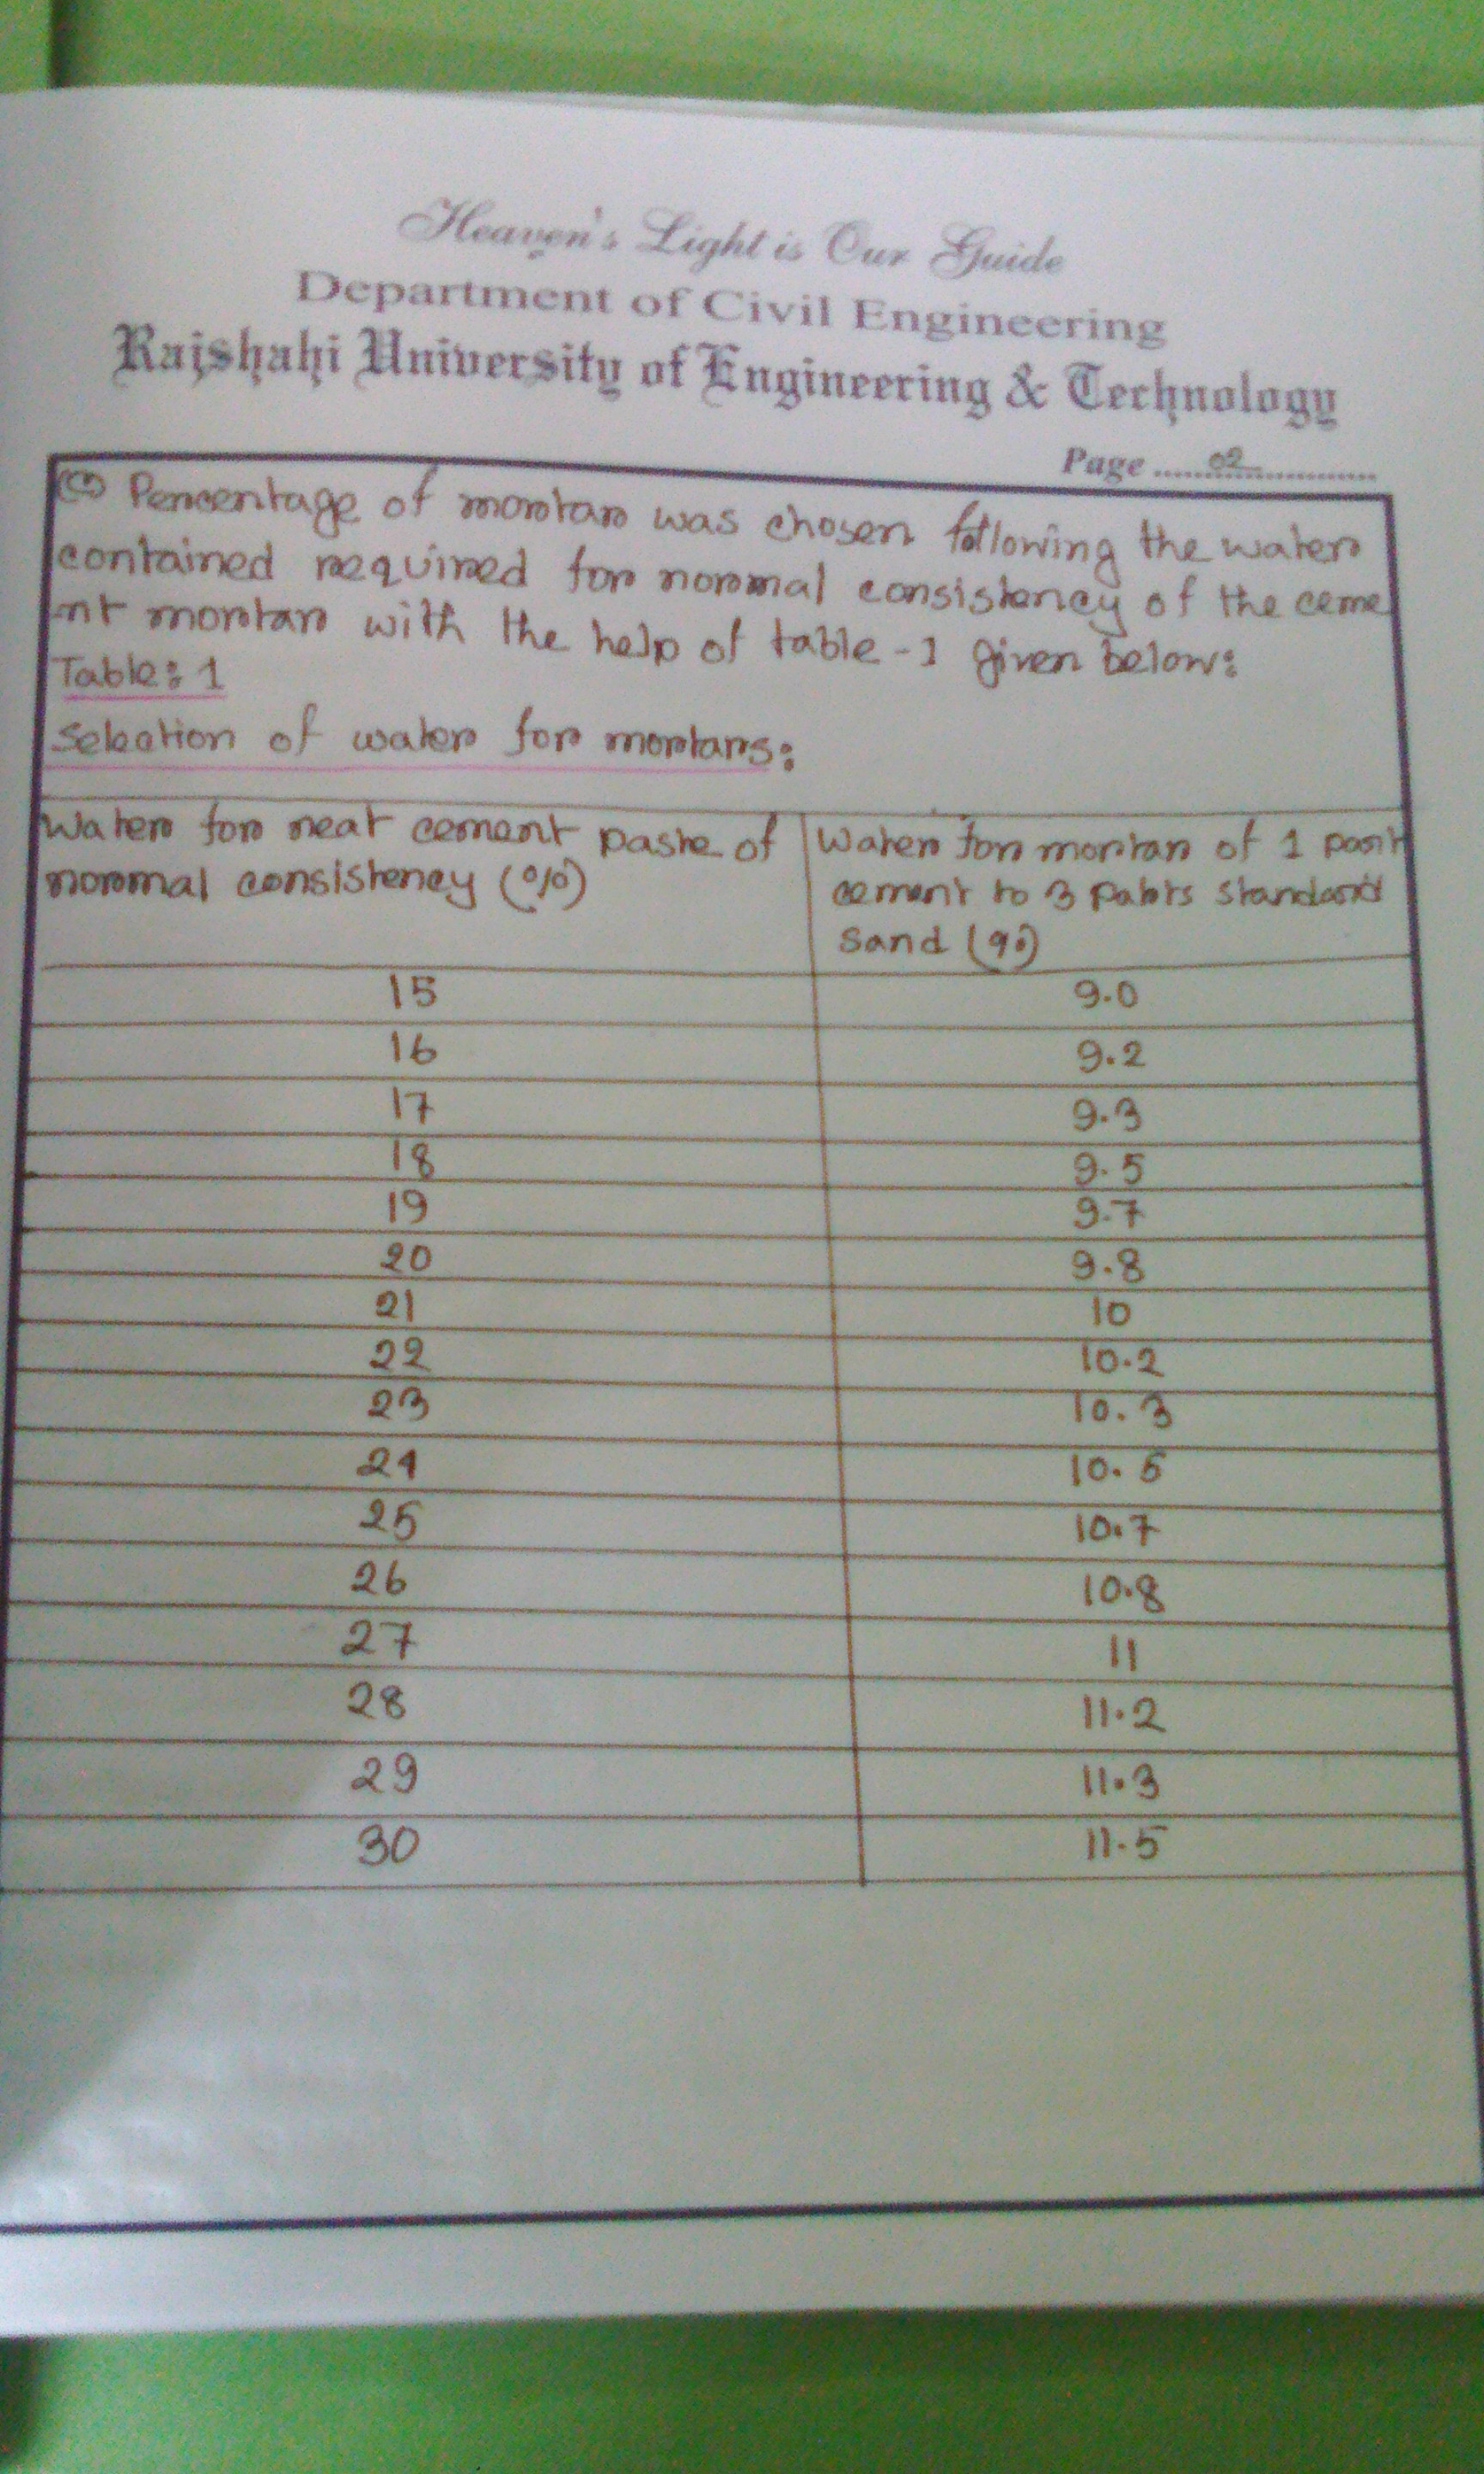 Heaven's Light is Our Guide
Department of Civil Engineering
Rajshahi University of Engineering & Technology
Page ......02......
Percentage of mortar was chosen following the water
contained required for normal consistency of the ceme
nt mortar with the help of table -1 given below:
Table: 1
Selection of water for mortars:
Water for neat cement paste of normal consistency (%) Water for mortar of 1 part cement to 3 parts standard sand (%)
15 9.0
16 9.2
17 9.3
18 9.5
19 9.7
20 9.8
21 10
22 10.2
23 10.3
24 10.5
25 10.7
26 10.8
27 11
28 11.2
29 11.3
30 11.5